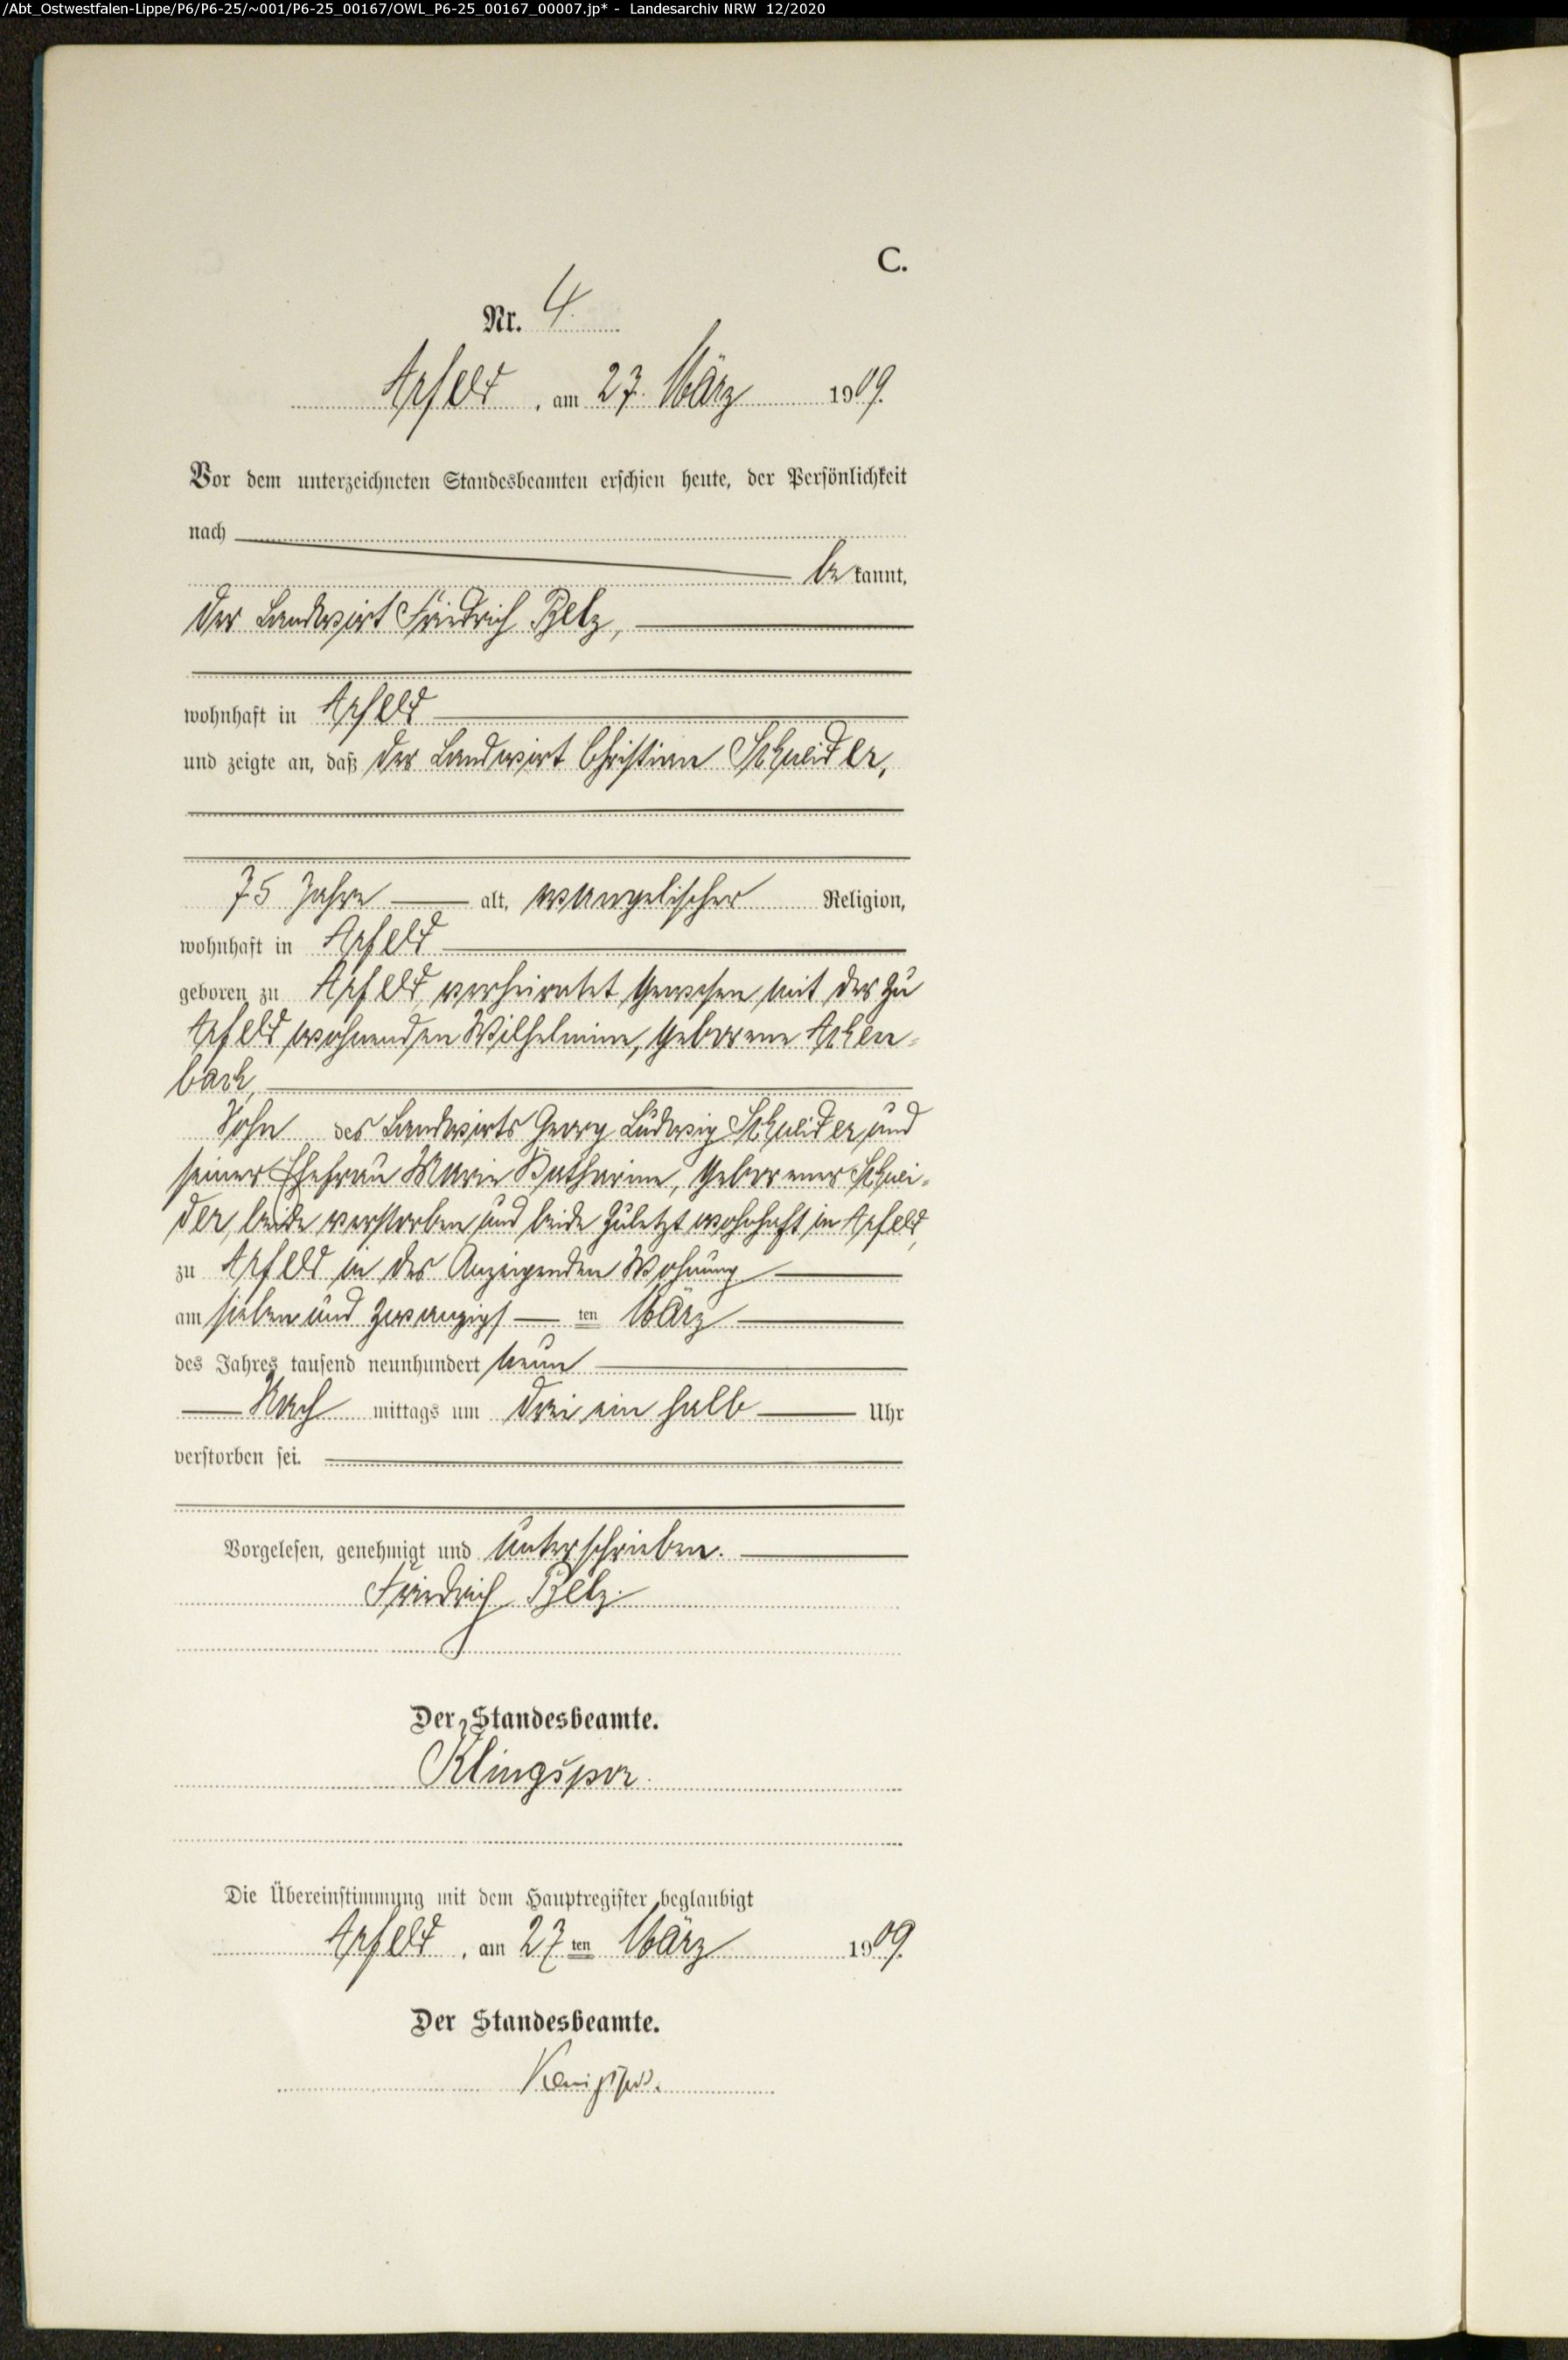 /Abt_Ostwestfalen-Lippe/P6/P6-25/~001/P6-25_00167/OWL_P6-25_00167_00007.jp* - Landesarchiv NRW 12/2020
C.
Nr. 4.
Arfeld, am 27. März 1909.
Vor dem unterzeichneten Standesbeamten erschien heute, der Persönlichkeit
nach
bekannt,
der Landwirt Friedrich Belz,
wohnhaft in Arfeld
und zeigte an, daß der Landwirt Christian Schneider,
75 Jahre alt, evangelischer Religion,
wohnhaft in Arfeld
geboren zu Arfeld, verheiratet gewesen mit der zu
Arfeld wohnenden Wilhelmine, geborene Achen=
bach,
Sohn des Landwirts Georg Ludwig Schneider und
seiner Ehefrau Marie Katharine, geborener Schnei=
der, beide verstorben und beide zuletzt wohnhaft in Arfeld,
zu Arfeld in des Anzeigenden Wohnung
am sieben und zwanzigsten März
des Jahres tausend neunhundert neun
Nachmittags um drei ein halb Uhr
verstorben sei.
Vorgelesen, genehmigt und unterschrieben.
Friedrich Belz.
Der Standesbeamte.
Klingspor.
Die Übereinstimmung mit dem Hauptregister beglaubigt
Arfeld, am 27ten März 1909.
Der Standesbeamte.